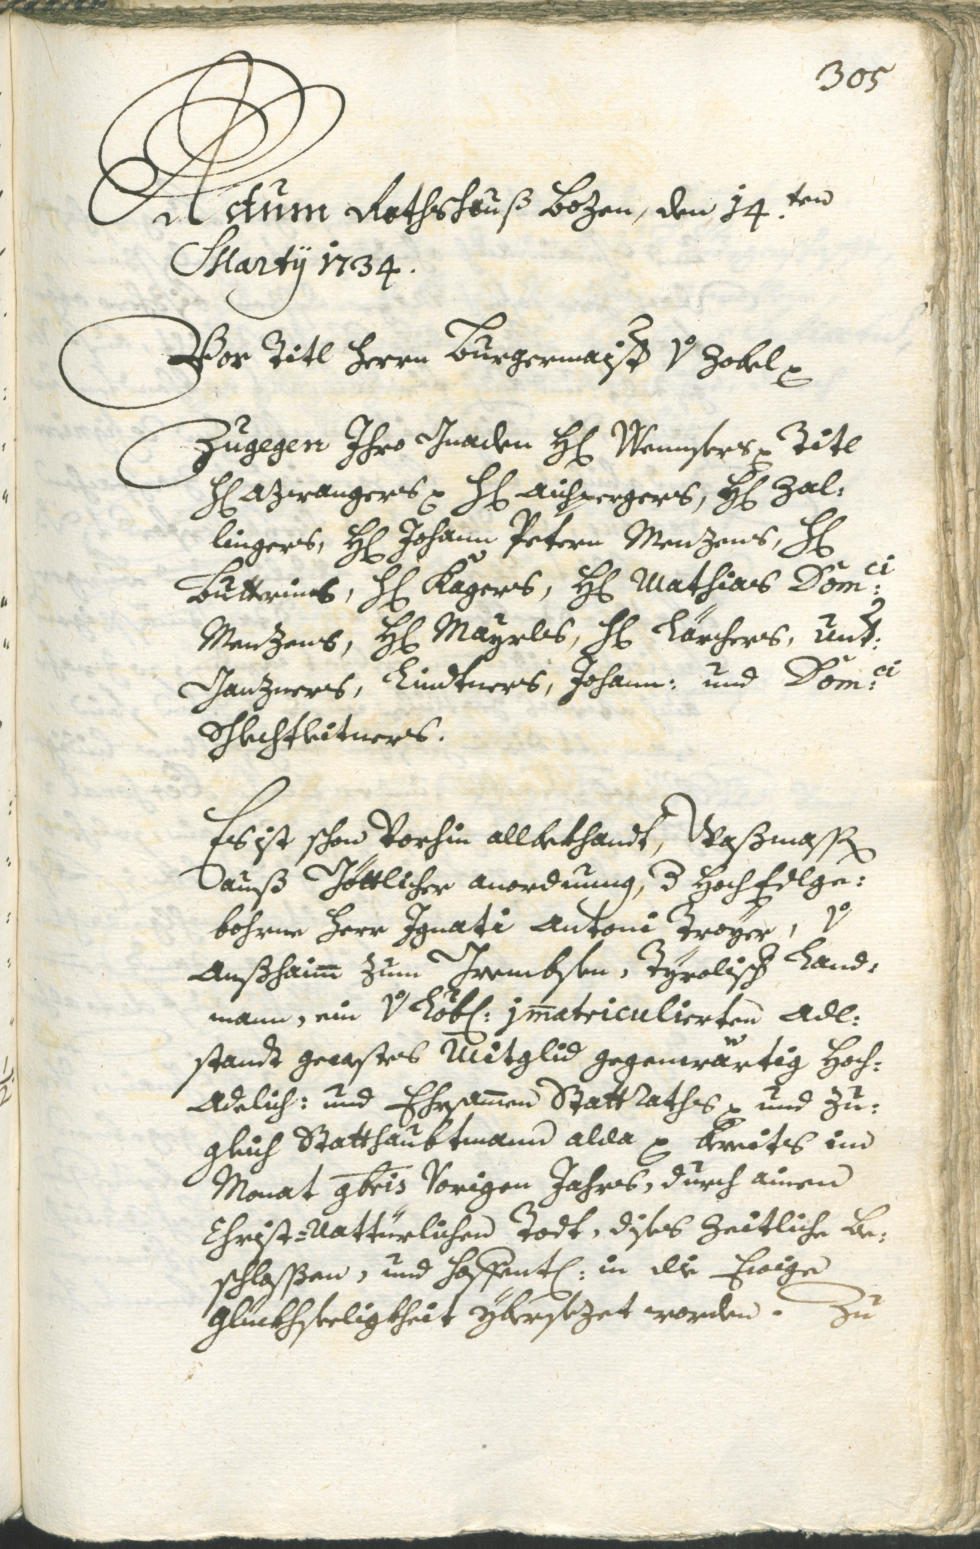 305
Actum Rathshauß Bozen, den 14.ten
Martÿ 1734.
Vor Titl Herrn Burgermaister v: Zobel
Zugegen Ihro Gnaden H: Wennsers Titl
H: Azwangers H: Aichpergers, H: Zal:
lingers, H: Johann Petern Menzens, H:
Butterinis, H: Kagers, H: Mathias Dom:ci
Menzens, H: Maÿrls, H: Kärchers, unt:
Ganzners, Lindtners, Johann: und Dom:ci
Schlechtleitners.
Es ist schon vorhin allbekhandt, Waßmassen
auß Göttlicher anordnung, d Hoch Edlge:
bohrne Herr Ignati Antoni Troÿer, v:
Aufhaim zum Grembsen, Tÿrolischer Land:
mann, ein v: Löbl: jmatriculierten Adl:
standt gewestes Mitglid gegenwärtig Hoch:
Adelich: und Ehrsamen Statt Raths und zu:
gleich Statthaubtmann alda bereits im
Monat 9bris vorigen Jahrs, durch ainen
Christ-Nattürlichen Todt, dises Zeitliche be:
schlossen, und hoffentl: in die Ewige
Glückhseeligkheit ÿbersezet worden. Zu